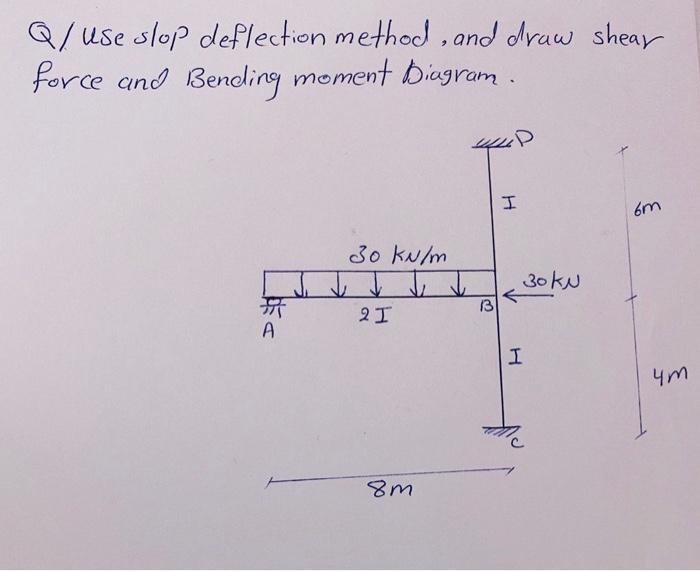 Q/ Use slop deflection method, and draw shear
force and Bending moment Diagram.
D
I
6m
30 kN/m
30 kN
B
2 I
A
I
4m
C
8m